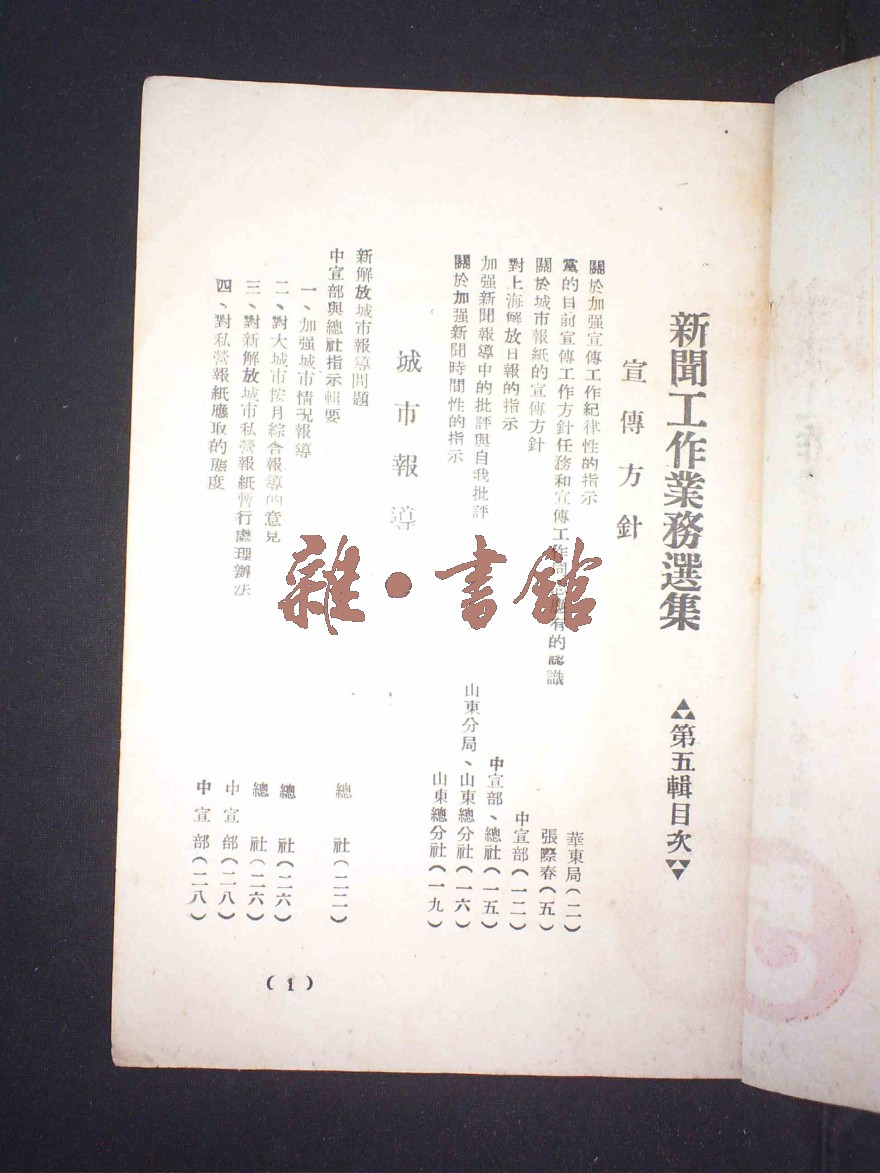 新聞工作業務選集
第五輯目次
宣傳方針
關於加强宣傳工作紀律性的指示 華東局(二)
黨的目前宣傳工作方針任務和宣傳工作同志應有的認識 張際春(五)
關於城市報紙的宣傳方針 中宣部(一二)
對上海解放日報的指示 中宣部、總社(一五)
加强新聞報導中的批評與自我批評 山東分局、山東總分社(一六)
關於加强新聞時間性的指示 山東總分社(一九)
城市報導
新解放城市報導問題 總社(二二)
中宣部與總社指示輯要
一、加强城市情况報導 總社(二六)
二、對大城市按月綜合報導的意見 總社(二六)
三、對新解放城市私營報紙暫行處理辦法 中宣部(二八)
四、對私營報紙應取的態度 中宣部(二八)
(1)
雜·書館